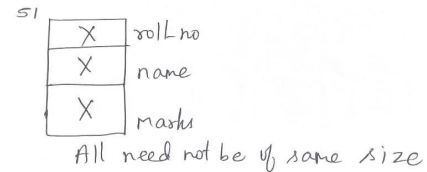 S1
X roll no
X name
X Marks
All need not be of same size